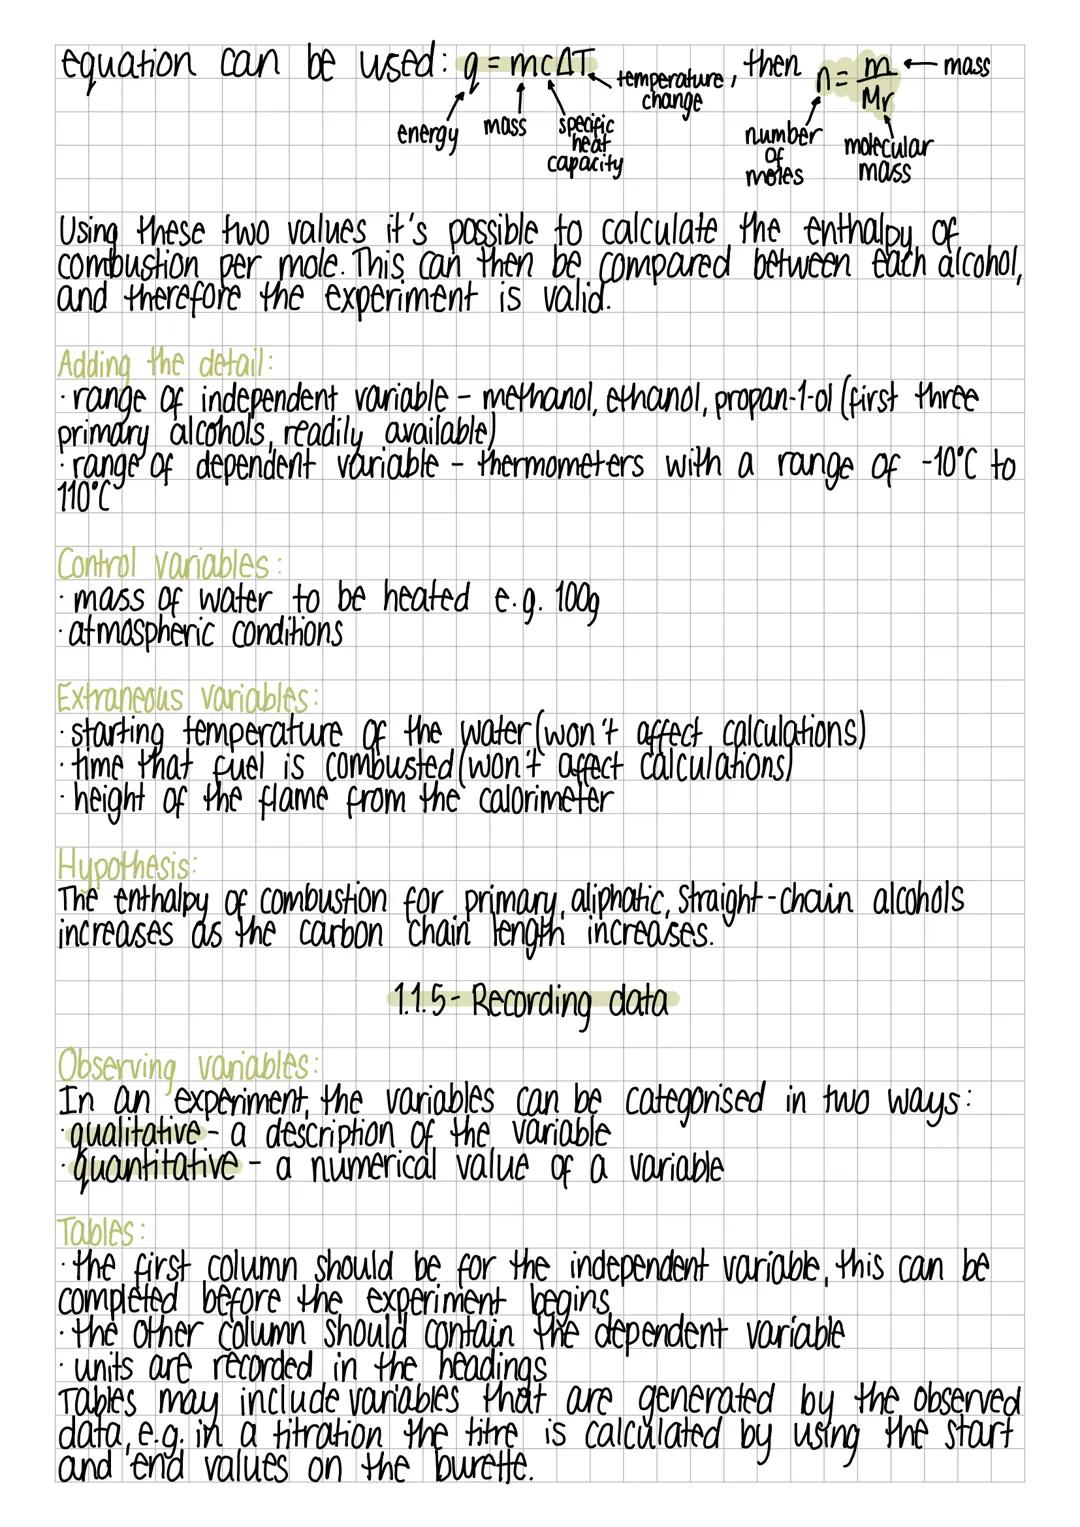 equation can be used: q = mcΔT, then n = m/Mr
energy
mass
specific heat capacity
temperature change
number of moles
mass
molecular mass
Using these two values it's possible to calculate the enthalpy of
combustion per mole. This can then be compared between each alcohol,
and therefore the experiment is valid.
Adding the detail:
· range of independent variable - methanol, ethanol, propan-1-ol (first three
primary alcohols, readily available)
· range of dependent variable - thermometers with a range of -10°C to
110°C
Control variables:
· mass of water to be heated e.g. 100g
· atmospheric conditions
Extraneous variables:
· starting temperature of the water (won't affect calculations)
· time that fuel is combusted (won't affect calculations)
· height of the flame from the calorimeter
Hypothesis:
The enthalpy of combustion for primary, aliphatic, straight-chain alcohols
increases as the carbon chain length increases.
1.1.5 - Recording data
Observing variables:
In an experiment, the variables can be categorised in two ways:
· qualitative - a description of the variable
· quantitative - a numerical value of a variable
Tables:
· the first column should be for the independent variable, this can be
completed before the experiment begins
· the other column should contain the dependent variable
· units are recorded in the headings
Tables may include variables that are generated by the observed
data, e.g. in a titration the titre is calculated by using the start
and end values on the burette.